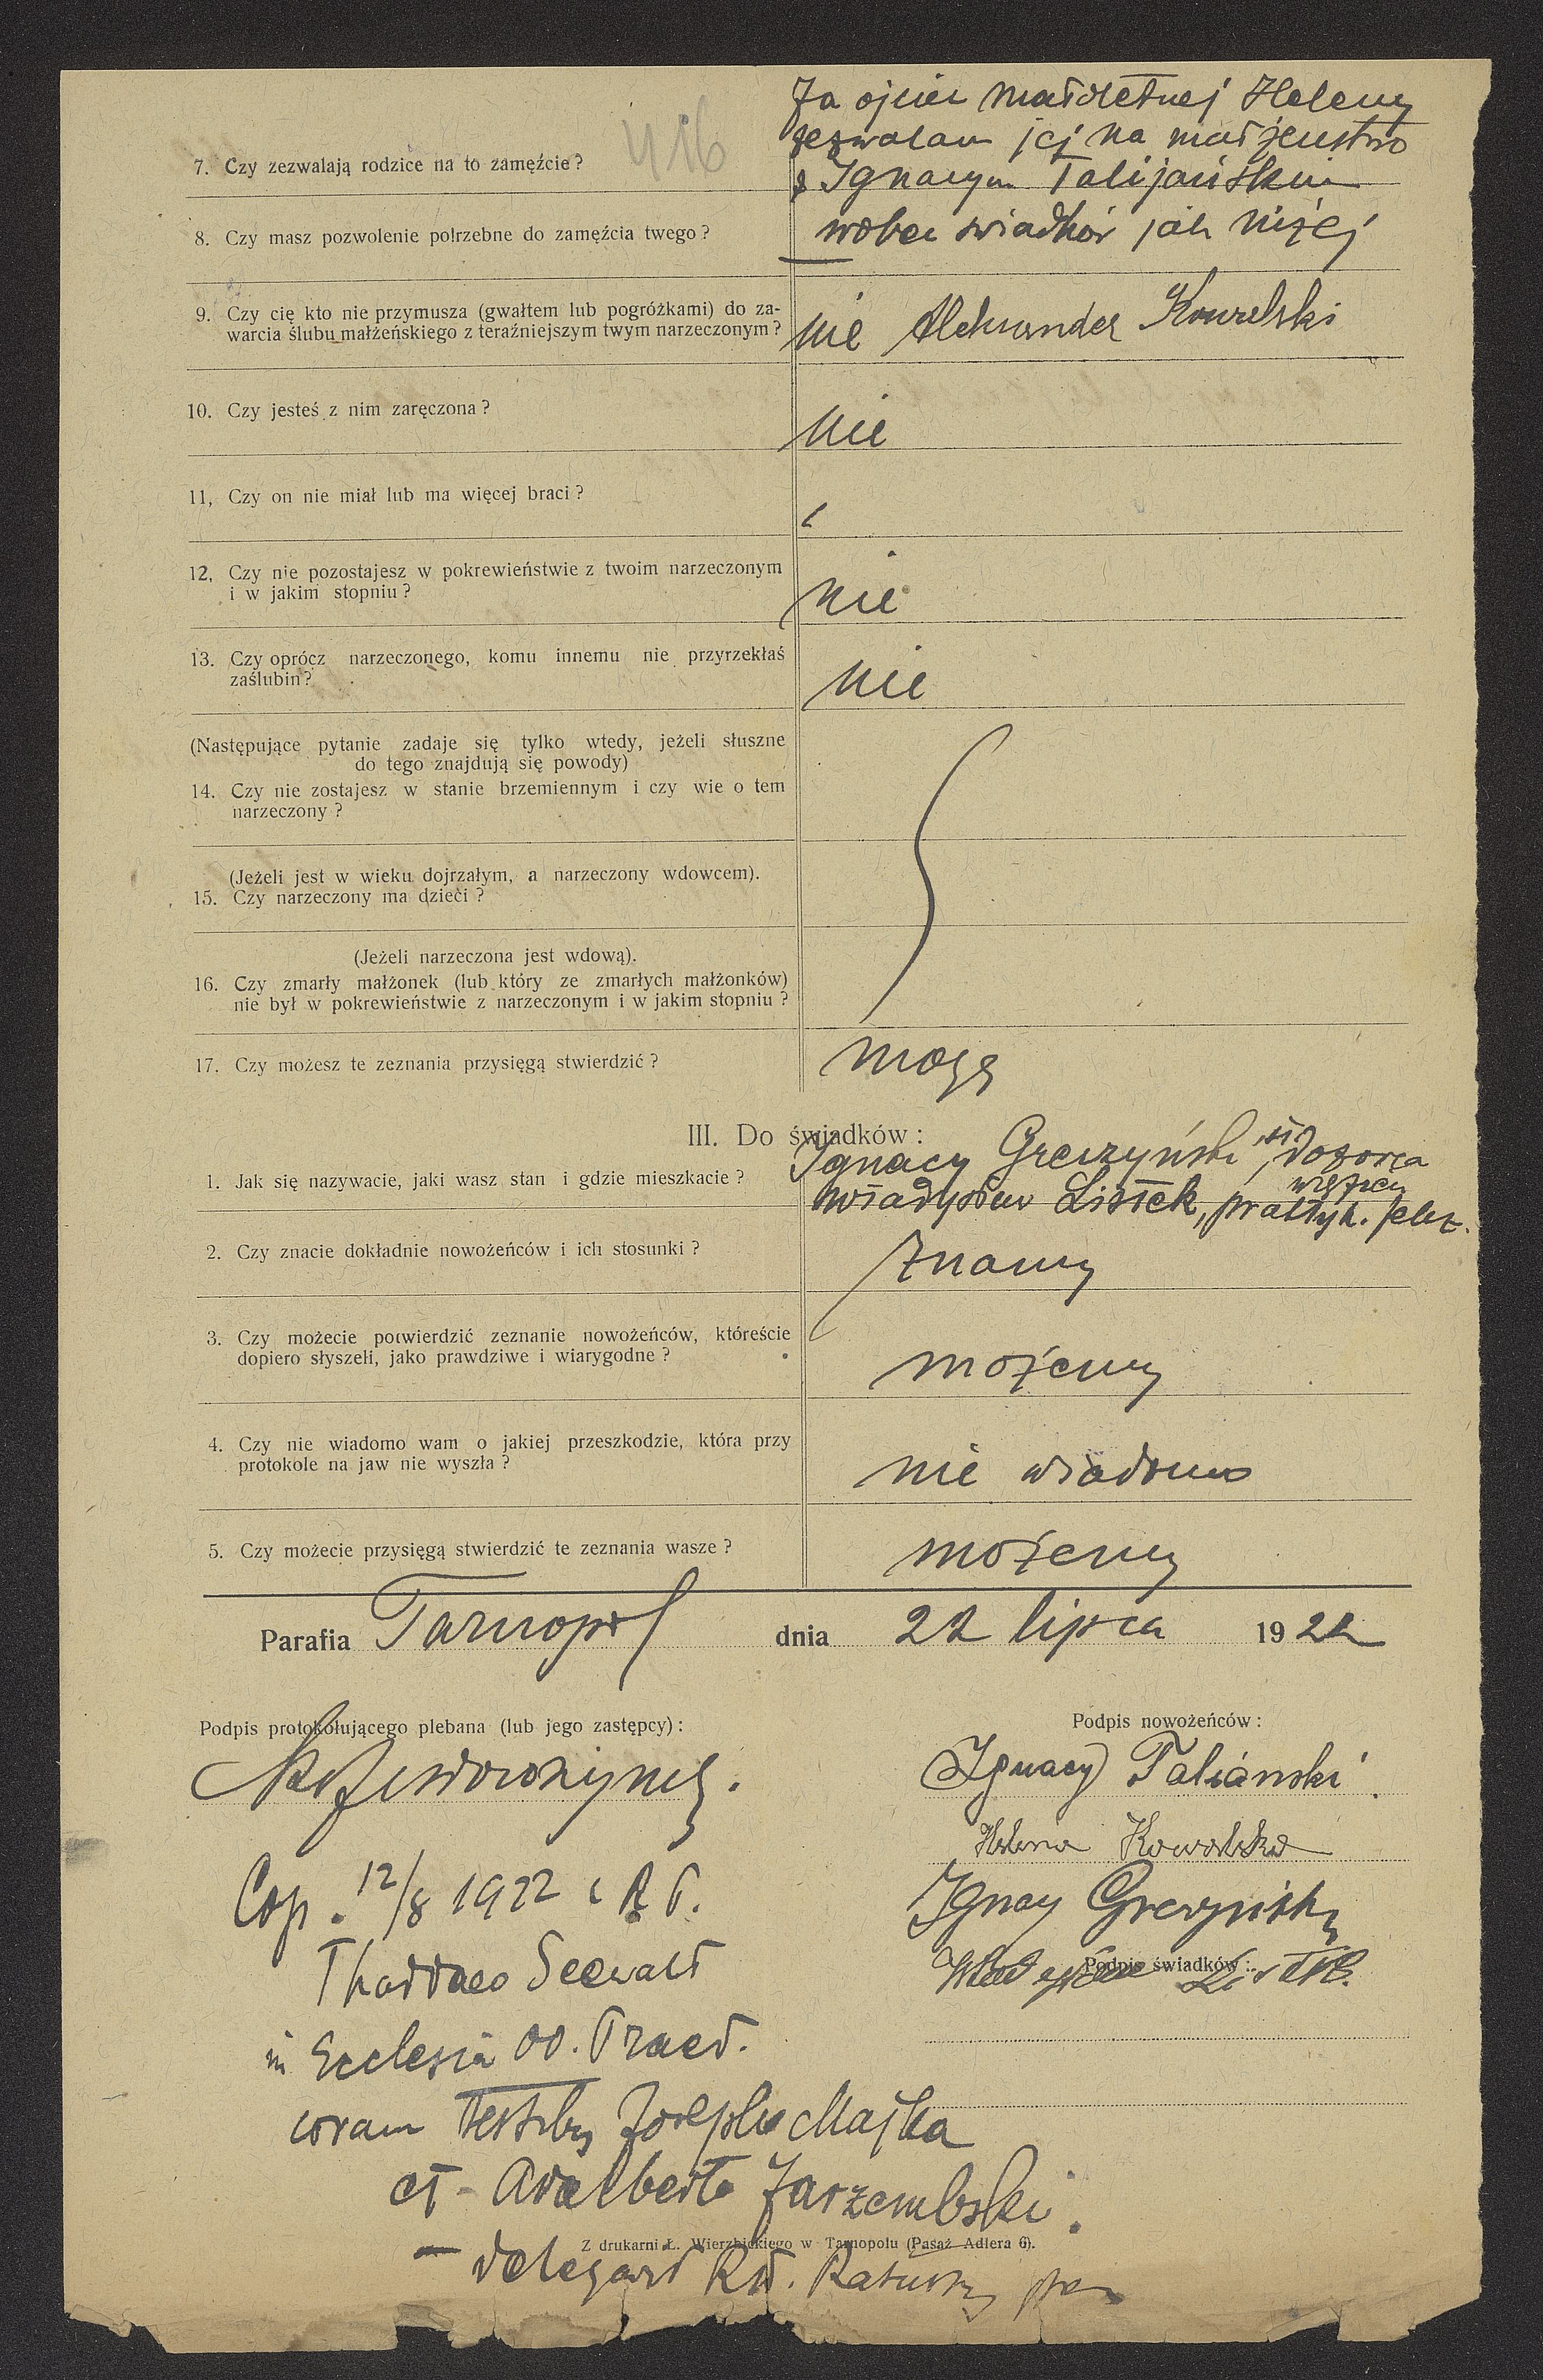 416
Ja ojciec małoletniej Heleny
zezwalam jej na małżeństwo
7. Czy zezwalają rodzice na to zamęźcie?
z Ignacym Talijańskim
8. Czy masz pozwolenie potrzebne do zamęźcia twego?
wobec swiadków jak niżej
9. Czy cię kto nie przymusza (gwałtem lub pogróżkami) do za-
warcia ślubu małżeńskiego z teraźniejszym twym narzeczonym?
nie Aleksander Kowalski
10. Czy jesteś z nim zaręczona?
nie
11, Czy on nie miał lub ma więcej braci?
12, Czy nie pozostajesz w pokrewieństwie z twoim narzeczonym
i w jakim stopniu?
nie
13. Czy oprócz narzeczonego, komu innemu nie przyrzekłaś
zaślubin?
nie
(Następujące pytanie zadaje się tylko wtedy, jeżeli słuszne
do tego znajdują się powody)
14. Czy nie zostajesz w stanie brzemiennym i czy wie o tem
narzeczony?
(Jeżeli jest w wieku dojrzałym, a narzeczony wdowcem).
15. Czy narzeczony ma dzieci?
(Jeżeli narzeczona jest wdową).
16. Czy zmarły małżonek (lub który ze zmarłych małżonków)
nie był w pokrewieństwie z narzeczonym i w jakim stopniu?
17. Czy możesz te zeznania przysięgą stwierdzić?
mogę
III. Do świadków:
1. Jak się nazywacie, jaki wasz stan i gdzie mieszkacie?
Ignacy Greczyński, st. dozorca
więzien
Władysław Listek, praktyk.
2. Czy znacie dokładnie nowożeńców i ich stosunki?
Znamy
3. Czy możecie potwierdzić zeznanie nowożeńców, któreście
dopiero słyszeli, jako prawdziwe i wiarygodne?
możemy
4. Czy nie wiadomo wam o jakiej przeszkodzie, która przy
protokole na jaw nie wyszła?
nie wiadomo
5. Czy możecie przysięgą stwierdzić te zeznania wasze?
możemy
Parafia Tarnopol dnia 22 lipca 1922
Podpis protokołującego plebana (lub jego zastępcy):
Podpis nowożeńców:
Ignacy Taliański.
Helena Kowalska
Ignacy Greczyński
Podpis świadków:
Władysław Listek.
Cop. 12/8 1922 c R. P.
Thaddaeo Seewald
in Ecclesia OO. Praed.
coram testibus Josepho Majka
et Adalberto Jarzembski.
Z drukarni Ł. Wierzbickiego w Tarnopolu (Pasaż Adlera 6).